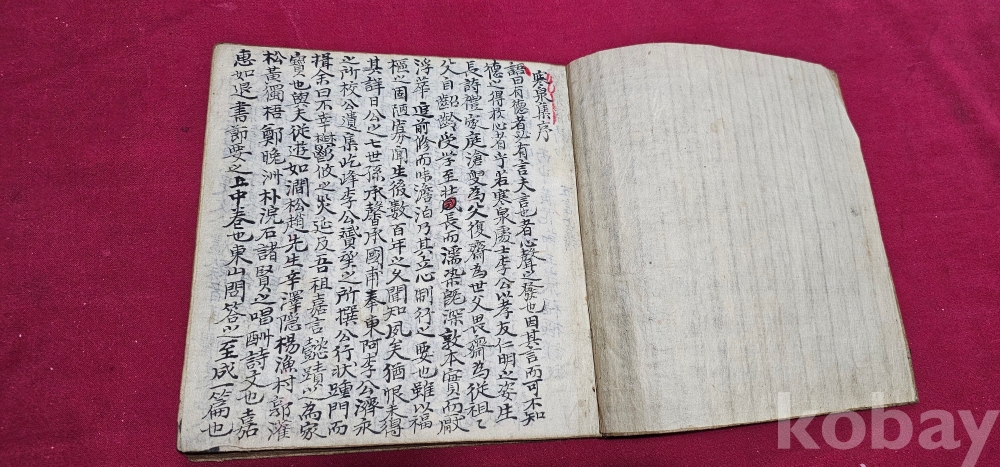 寒泉集序
語曰有德者必有言夫言也者心聲之發也因其言而可不知
德之得於心者乎若寒泉處士李公以孝友仁明之姿生
長詩禮家庭滄叟為父復齋為世父畏齋為從祖〻
父自齠齡受學至壯長而濡染旣深敦本實而厭
浮華追前修而味澹泊乃其立心制行之要也雖以福
樞之固陋寡聞生後數百年之久聞知夙矣猶恨未得
其詳日公之七世孫承馨承國甫奉東阿李公濟永
之所校公遺集屹峰李公瓚의之所撰公行狀踵門而
揖余曰不幸欝攸之灾延及吾祖嘉言懿蹟之為家
寶也與夫從遊如澗松趙先生辛澤隱楊漁村郭
松黃獨梧鄭晚洲朴浣石諸賢之唱酬詩文也嘉
惠如退書節要之上中卷也東山問答之至成一篇也
kobay